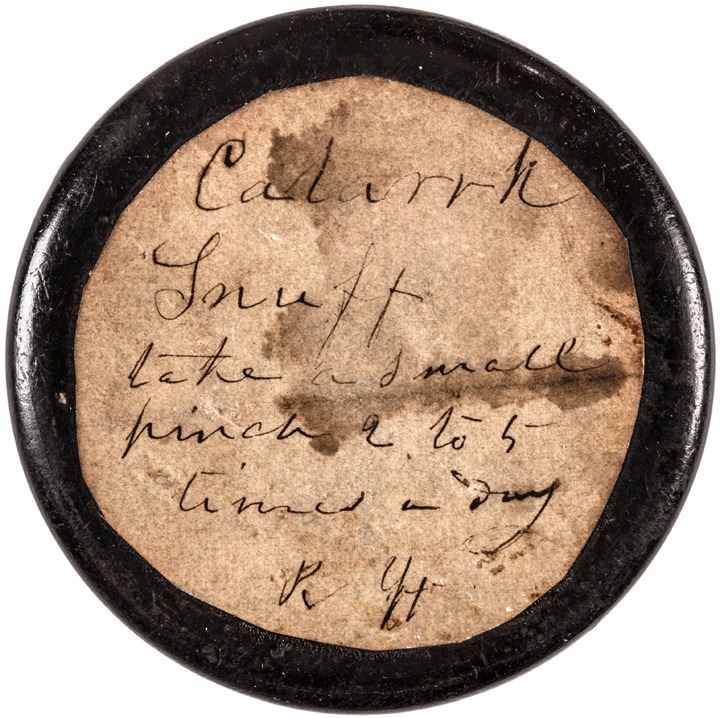 Catarrh
Snuff
take a small
pinch 2 to 5
times a day